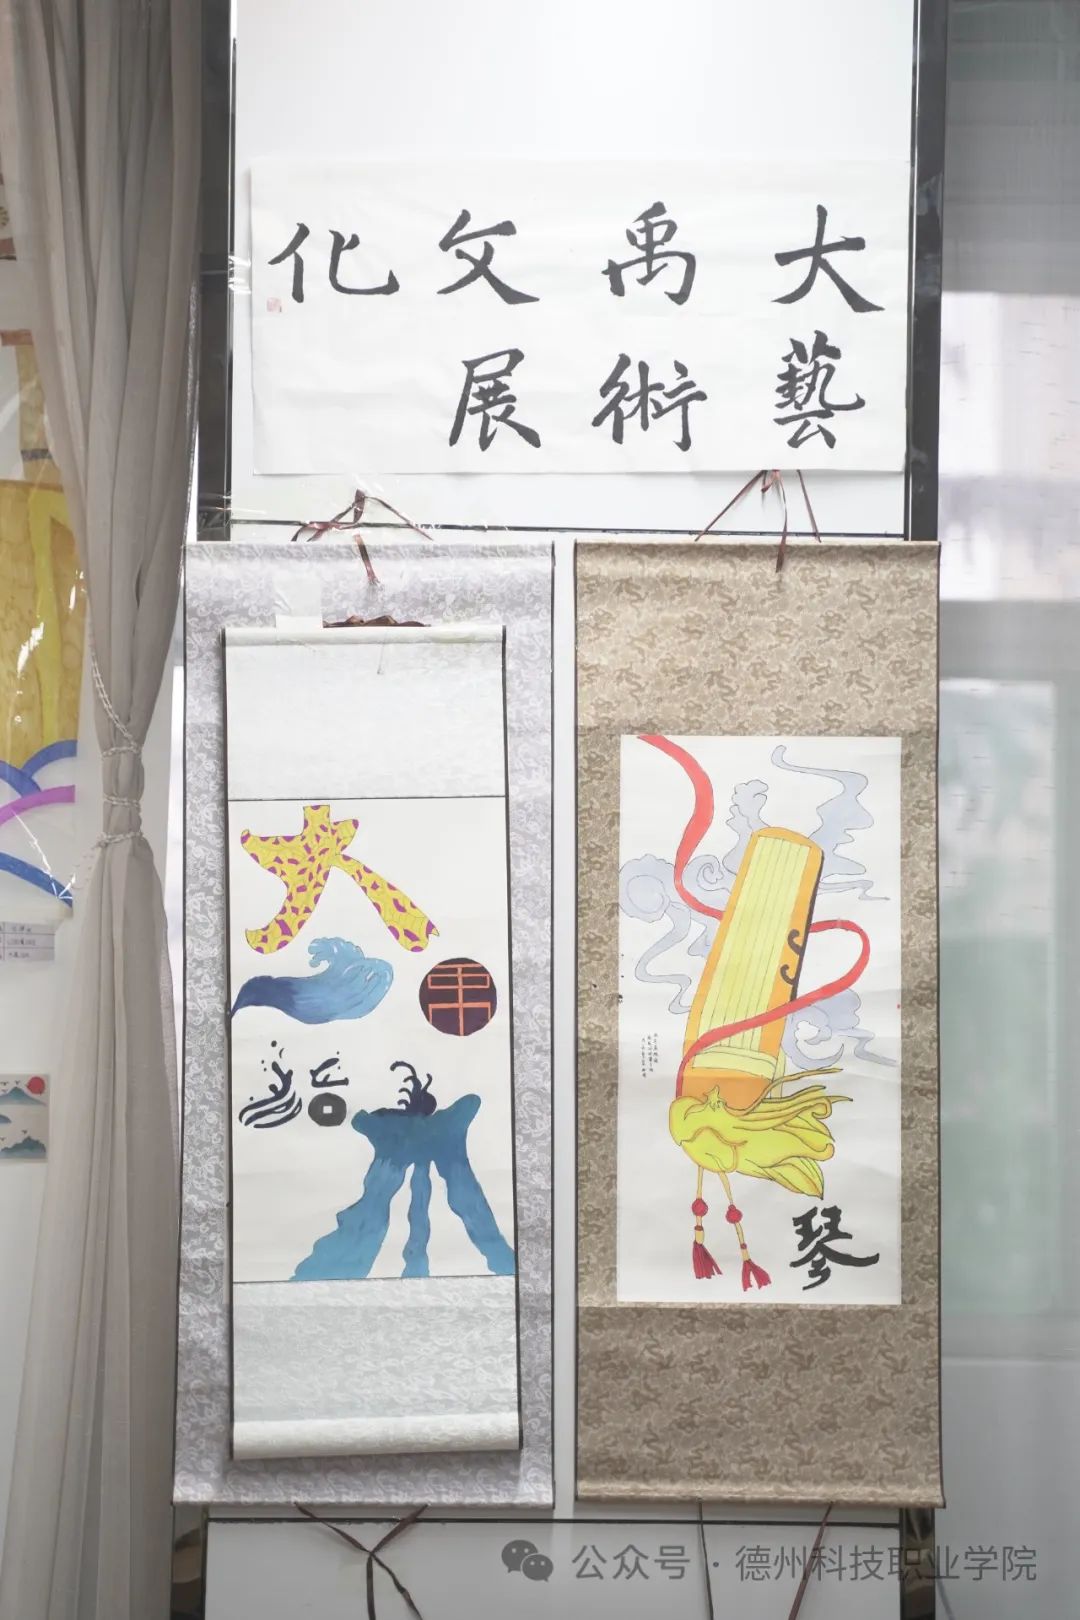 大禹文化
藝術展
大禹治水
琴
公众号 · 德州科技职业学院